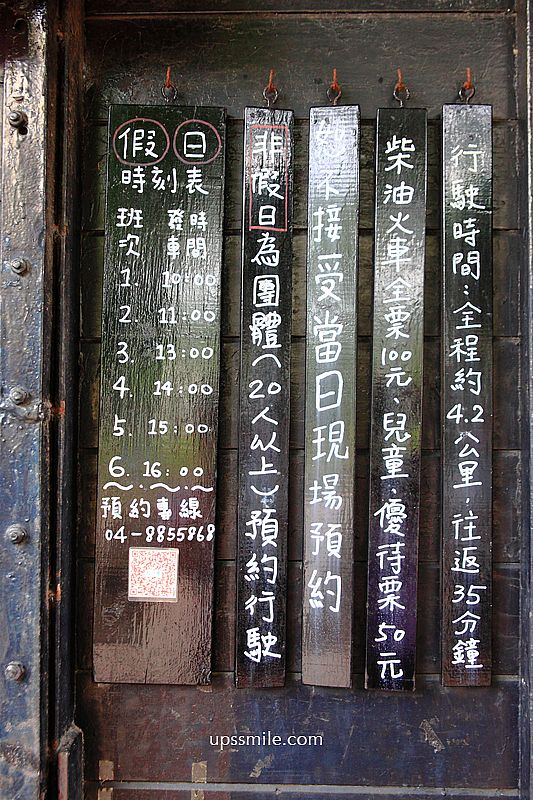 行駛時間：全程約4.2公里，往返35分鐘
柴油火車全票100元、兒童、優待票50元
不接受當日現場預約
非假日為團體(20人以上)預約行駛
假日
時刻表
班次 發車時間
1. 10:00
2. 11:00
3. 13:00
4. 14:00
5. 15:00
6. 16:00
預約專線
04-8855868
upssmile.com